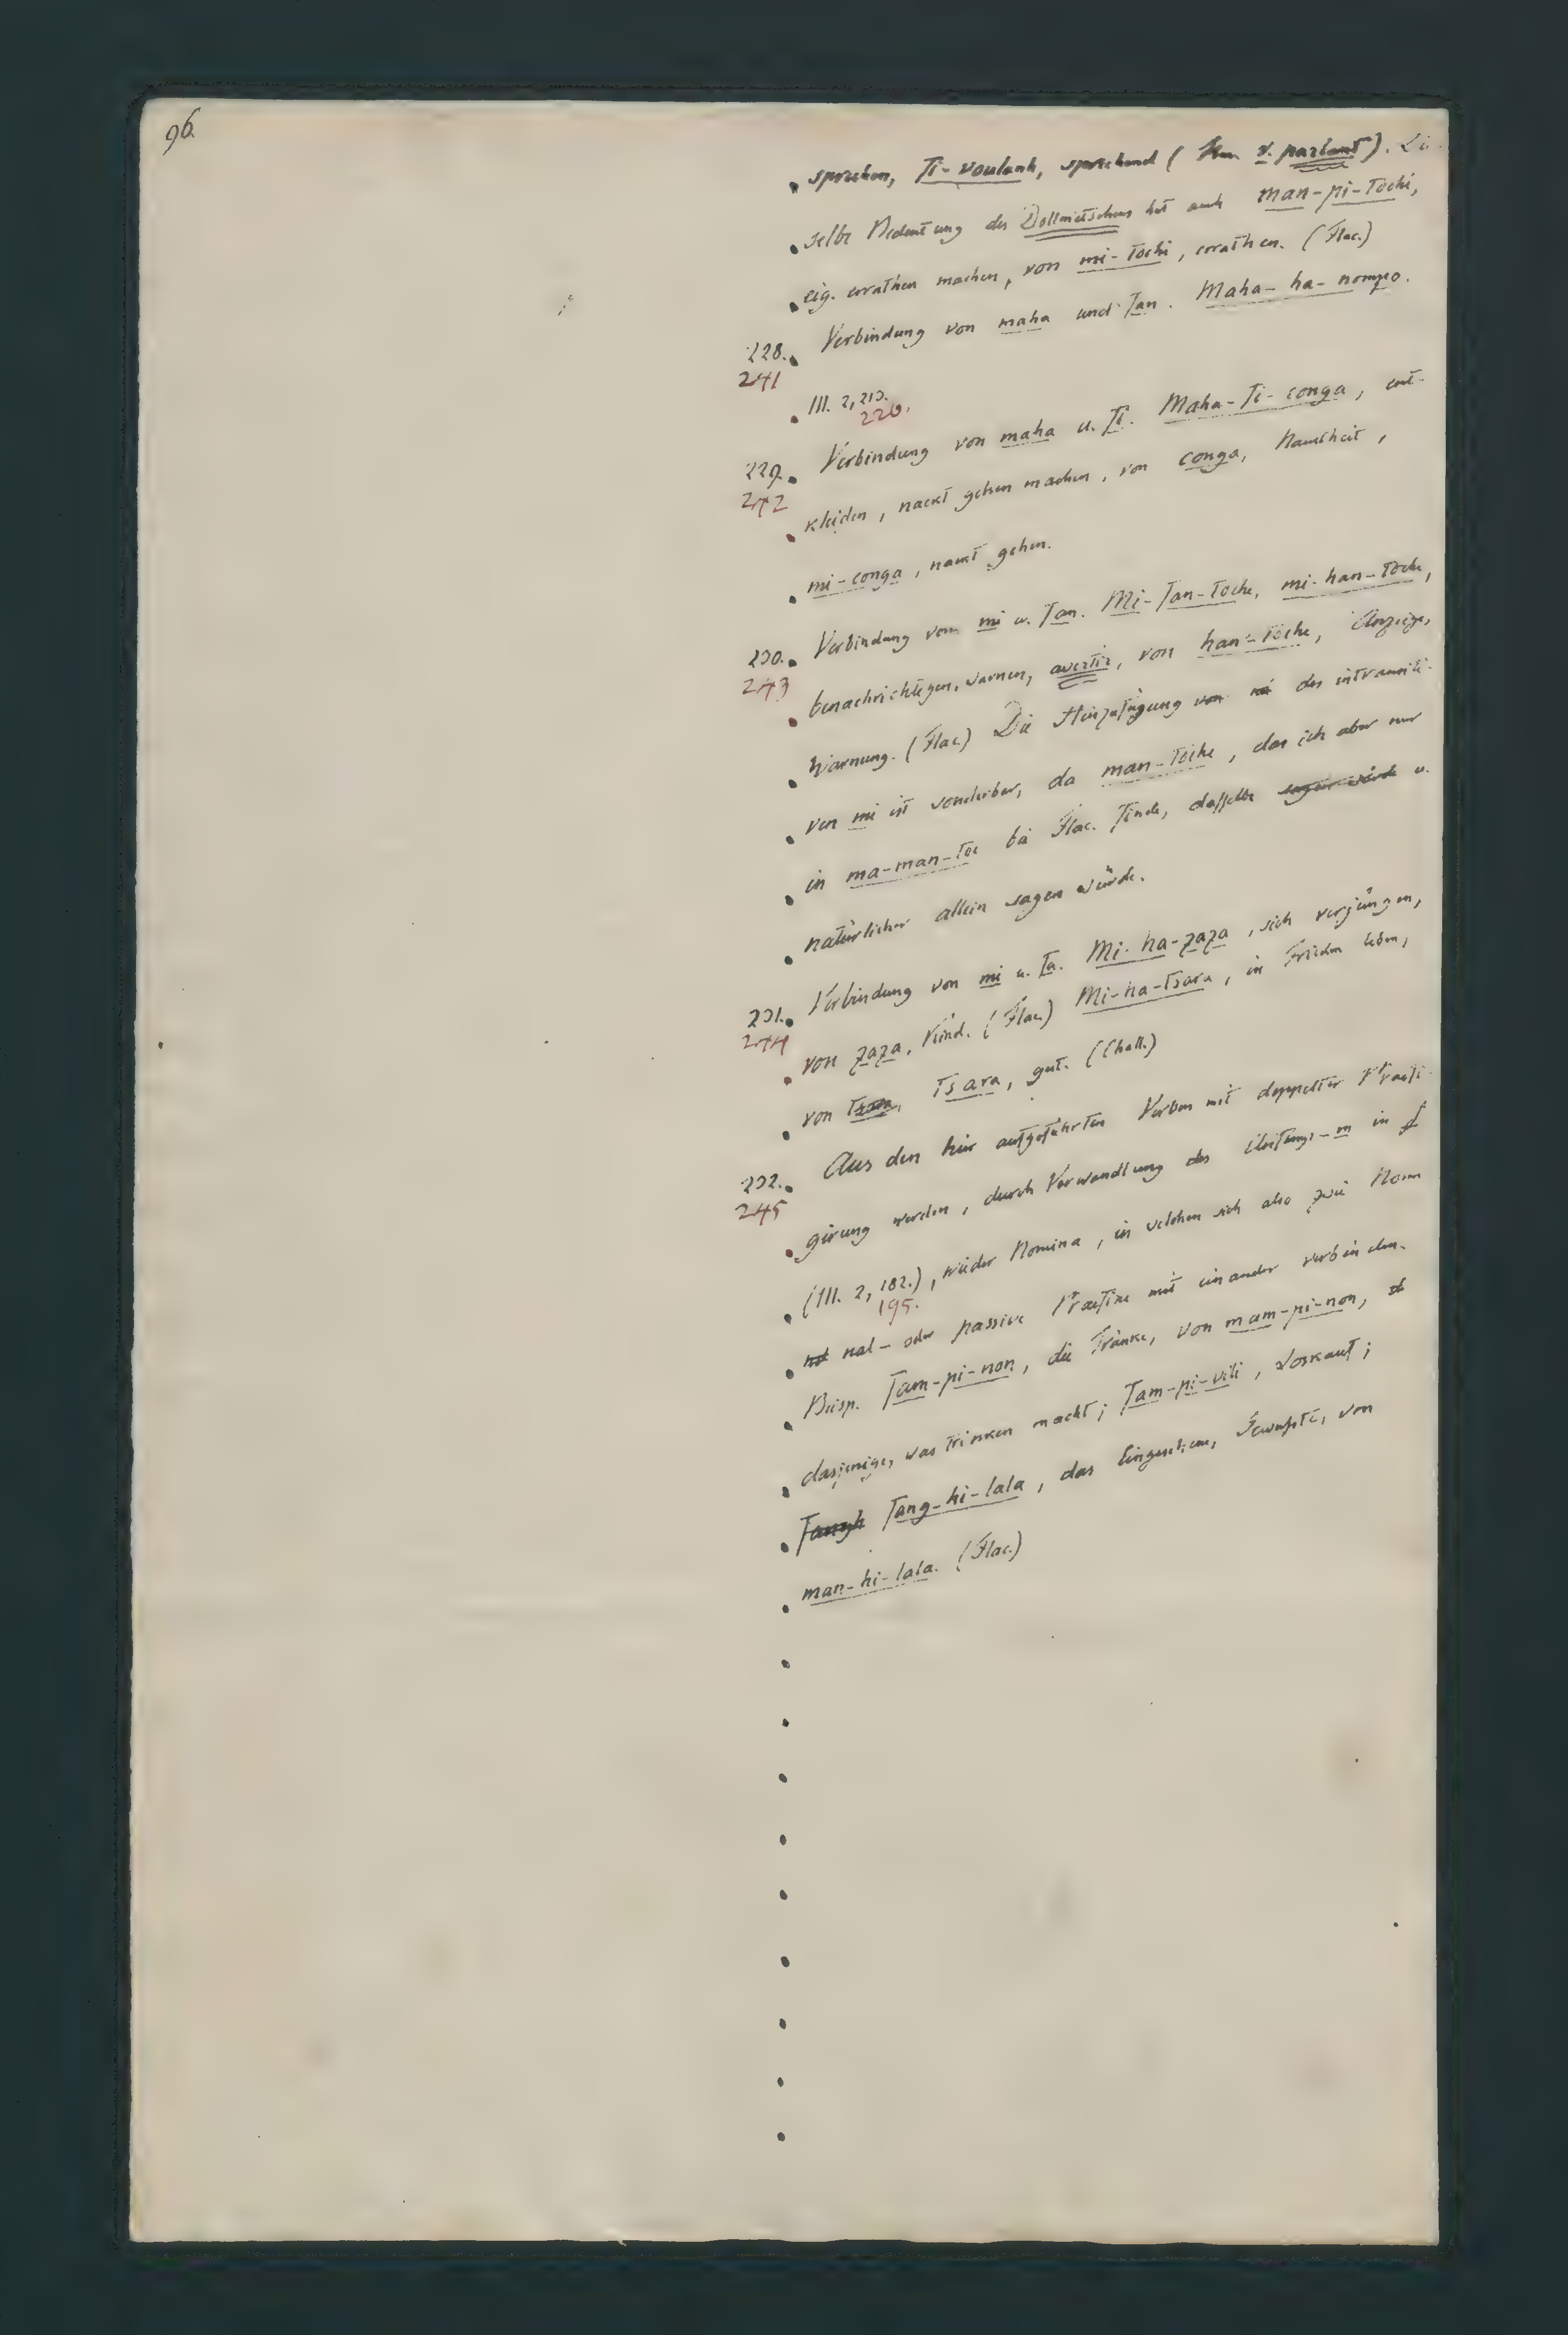 96.
sprechen, ti-voulank, sprechend (v. parlant). Die-
selbe Bedeutung des Dollmetschens hat auch man-pi-tochi,
eig. errathen machen, von mi-tochi, errathen. (Flac.)
228. Verbindung von maha und tan. Maha-ha-nompo.
241
III. 2, 213.
226.
229. Verbindung von maha u. ti. Maha-ti-conga, ent-
242
kleiden, nackt gehen machen, von conga, Nacktheit,
mi-conga, nackt gehen.
230. Verbindung von mi u. tan. Mi-tan-toche, mi-han-toche,
243
benachrichtigen, warnen, avertir, von han-toche, Anzeige,
Warnung. (Flac.) Die Hinzufügung von mi des intransiti-
ven mi ist sonderbar, da man-toche, das ich aber nur
in ma-man-toc bei Flac. finde, dasselbe sagen würde u.
natürlicher allein sagen würde.
231. Verbindung von mi u. ta. Mi-ha-zaza, sich verjüngen,
244
von zaza, Kind. (Flac.) Mi-ha-tsara, in Frieden leben,
von tsara, gut. (Chall.)
232. Aus den hier aufgeführten Verben mit doppelter Praefi-
245
girung werden, durch Verwandlung des Anfangs-m in f
(III. 2, 182.), wieder Nomina, in welchen sich also zwei Nomi-
195.
nal- oder passive Praefixe mit einander verbinden.
Beisp. Tam-pi-non, die Tränke, von mam-pi-non,
dasjenige, was trinken macht; Tam-pi-vili, Loskauf;
Tangh Tang-hi-lala, das Eingesehene, Gewußte, von
man-hi-lala. (Flac.)